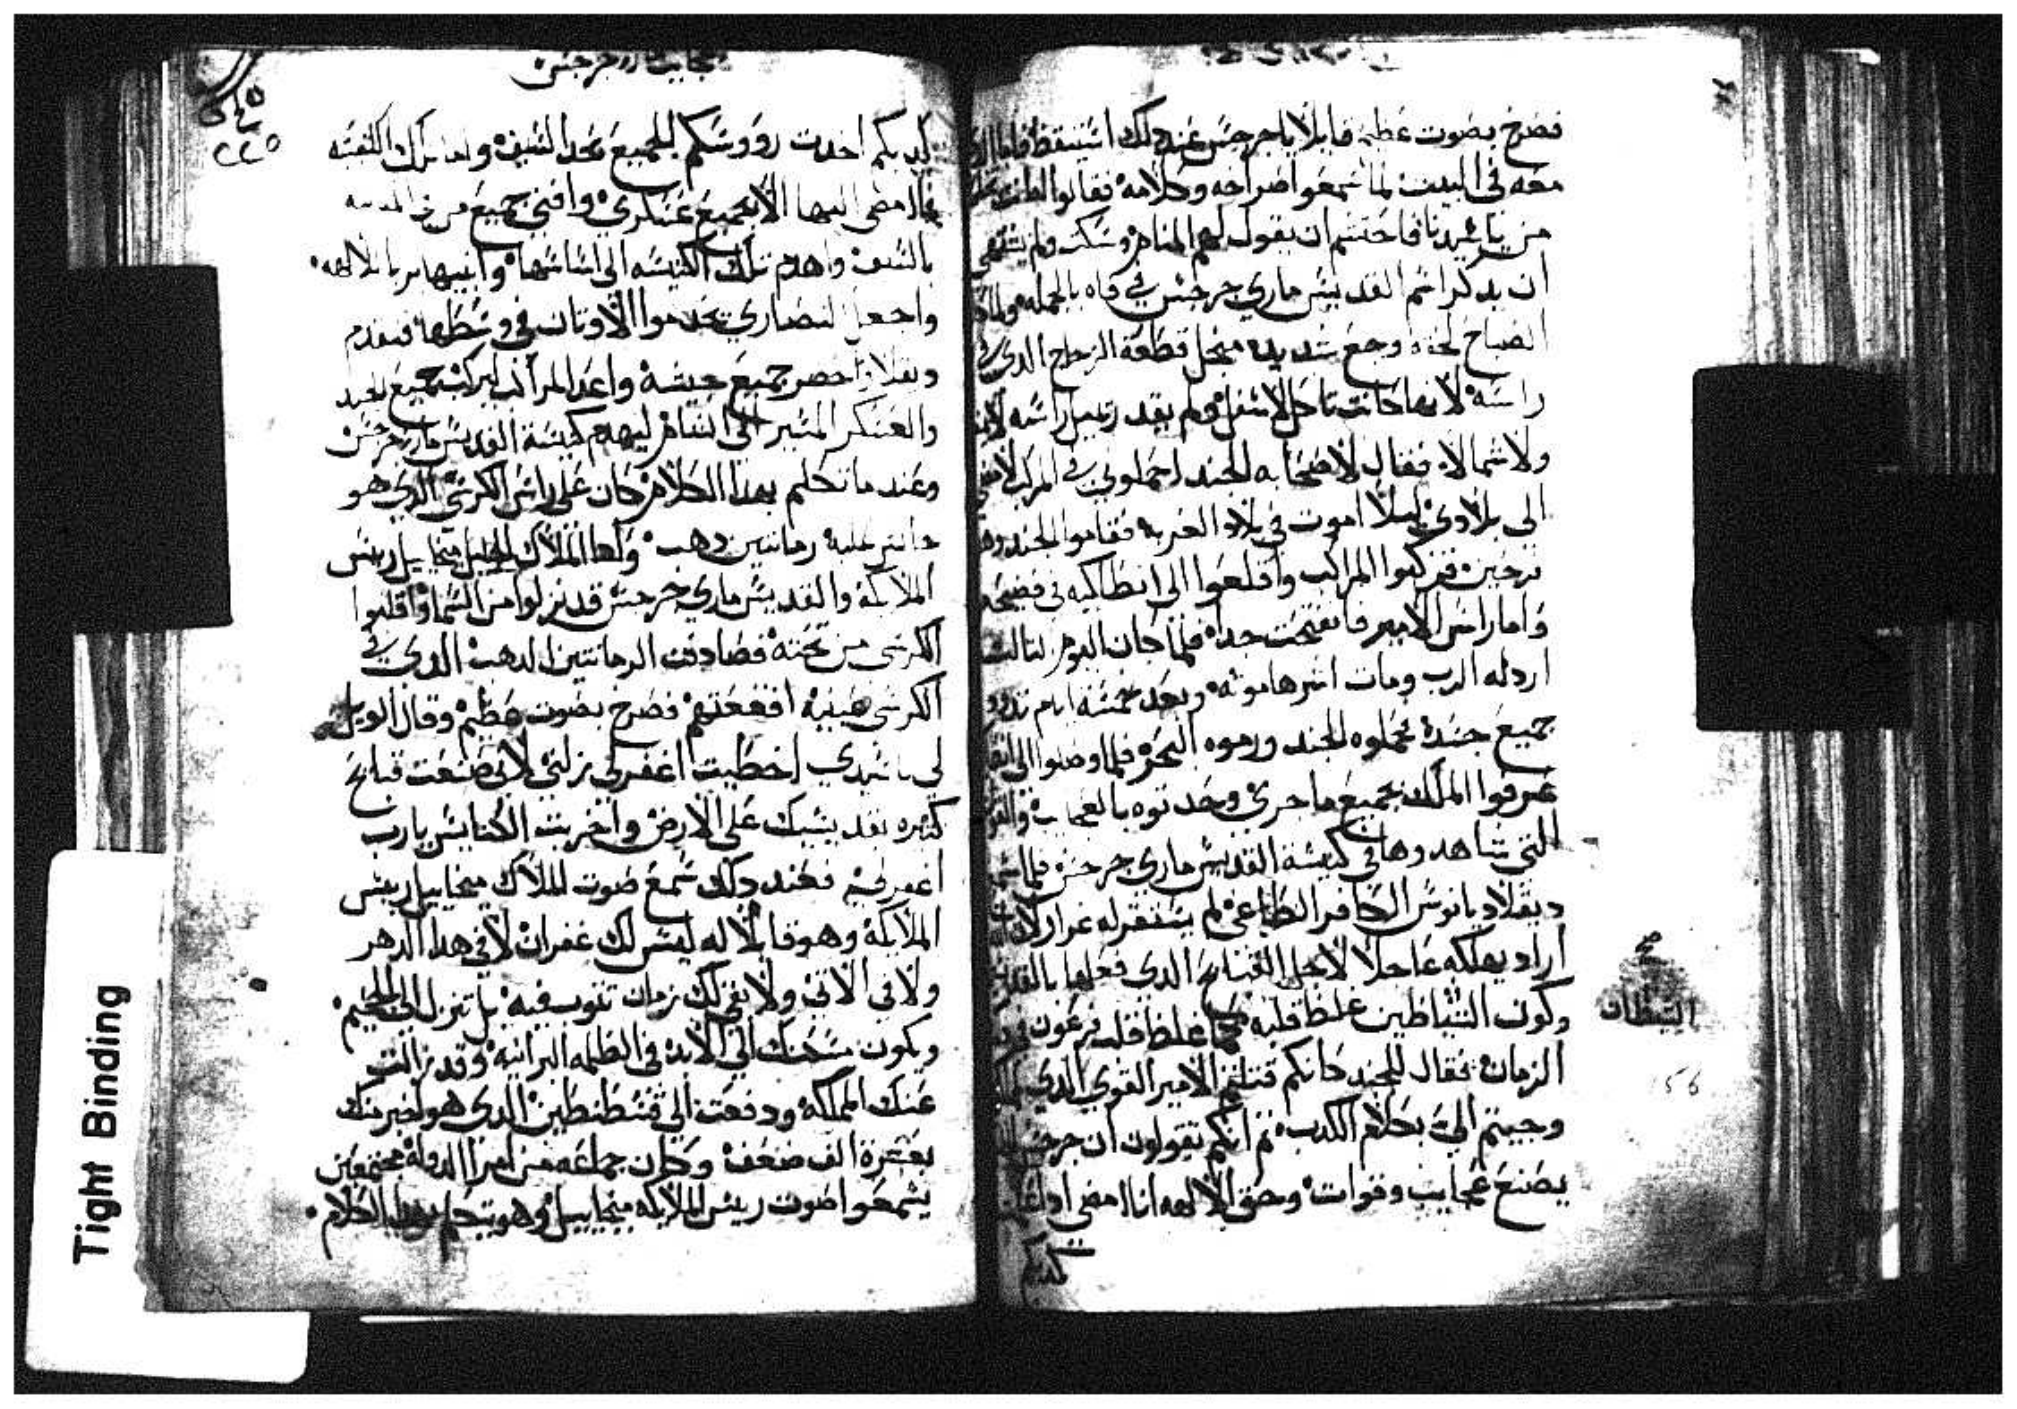 فصرخ بصوت عظيم قايلا ياجرجس عند دلك استيقظ فاما
معه في البيت لما سمعوا صراخه وكلامه فقالوا
من ياسيدنا فاحتشم ان يقول لهم المنام وسكت ولم يشتهي
ان يدكر اسم القديس ماري جرجس في فاه بالجمله
الصباح لحقه وجع شديد من اجل قطعة الزجاج الدي في
راسه لانها كانت تاكل لاسفل ولم يقدر يميل راسه
ولا شمالا فقال لاصحابه الجند احملوني في المركب
الى بلادي ليلا اموت في بلاد الغربه فقاموا الجند
فركبوا المراكب واقلعوا الى انطاكيه في فضيحه
واما راس الامير فانفتحت جدا فلما كان اليوم التالت
اردله الرب ومات اشر هاموته وبعد خمسة ايام
جميع جسده فحملوه الجند ورموه البحر فلما وصلوا الى
عرفوا الملك بجميع ما جرى وحدتوه بالعجايب
التي شاهدوها في كنيسة القديس ماري جرجس فلما
ديقلاديانوس الكافر الطاغي لم يستقر له قرار لان
اراد يهلكه عاجلا لاجل القبايح الدي فعلها
وكون الشياطين غلظ قلبه كما غلظ قلب فرعون في
الزمان فقال للجند كانكم قتلتم الامير القوي الدي
وجيتم الي بكلام الكدب تم انكم تقولون ان جرجس
يصنع عجايب وقوات وحق الالهه انا امضي
صح
الشيطان
156
عجايب مار جرجس
٢٢٥
لديكم اخدت رووسكم الجميع بحد السيف تلك الكنيسه
امضى اليها الا بجميع عسكري وافني جميع من في المدينه
بالسيف واهدم تلك الكنيسه الى اساسها وابنيها بربا للالهه
واجعل النصارى يخدموا الاوتان في وسطها فتقدم
ديقلاديانوس احضر جميع جيشه واعد المراكب ليركب جميع الجند
والعسكر المسير الى الشام ليهدم كنيسة القديس مار جرجس
وعند ما تكلم بهدا الكلام كان على راس الكرسي الدي هو
جالس عليه رمانتين دهب الملاك الجليل ميخاييل رييس
الملايكه والقديس ماري جرجس قد نزلوا من السما واقلبوا
الكرسي من تحته فصادفت الرمانتين الدهب الدي في
الكرسي عينيه افقعتهم فصرخ بصوت عظيم وقال الويل
لي يا سيدي اخطيت اغفر لي زلتي لاني صنعت قبايح
كتيره بقديسيك على الارض واخربت الكنايس يارب
اغفر لي فعند دلك سمع صوت الملاك ميخاييل رييس
الملايكه وهو قايلا له ليس لك غفران لا في هدا الدهر
ولا في الاتي ولا بقي لك زمان تتوب فيه بل تنزل الى الجحيم
ويكون مسكنك الى الابد في الظلمه البرانيه وقد زالت
عنك المملكه ودفعت الى قسطنطين الدي هو اخير منك
بعشرة الف ضعف وكان جماعه من امرا الدوله مجتمعين
يسمعوا صوت رييس الملايكه ميخاييل وهو يتكلم بهدا الكلام
Tight Binding